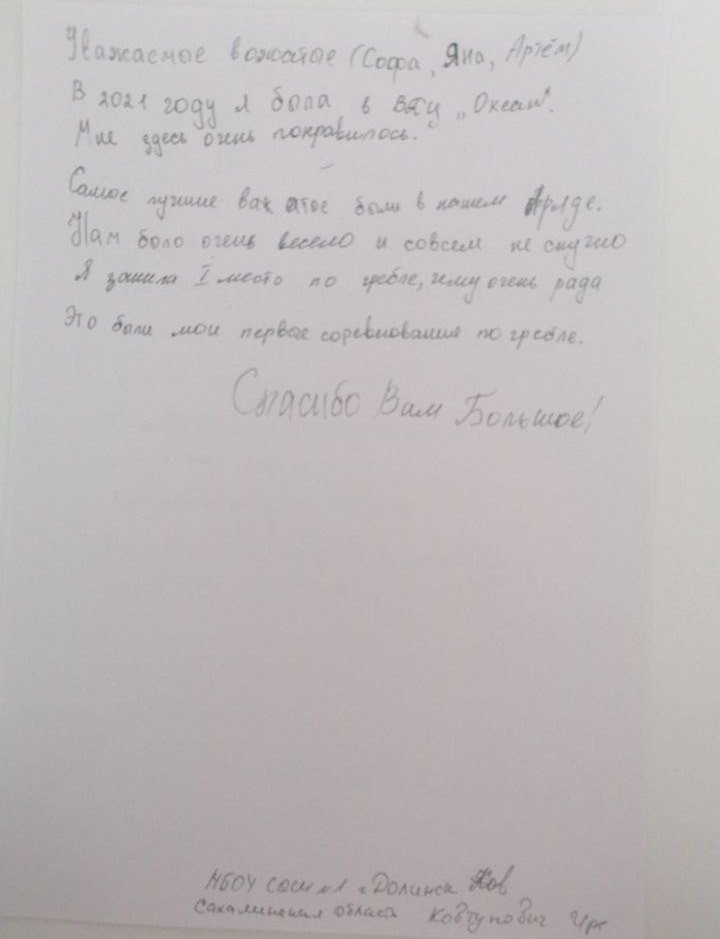 Уважаемое вожатое (Софа, Яна, Артём)
В 2021 году я бола в ВДЦ „Океан".
Мне здесь очень понравилось.
Самое лучшие важатое боли в нашем
Нам боло очень весело и совсем не скучно
Я заняла I место по гребле, чему очень рада
Это боли мои первые соревнования по гребле.
Спасибо Вам Большое!
МБОУ СОШ №1 г. Долинск
Сахалинская область Ковтунович